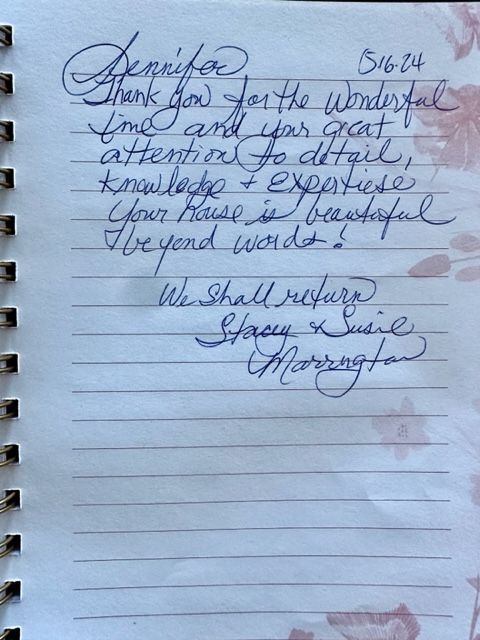 Jennifer 5·16·24
Thank you for the wonderful
time and your great
attention to detail,
knowledge + Expertiese
Your house is beautiful
& beyond words!
We shall return
Stacey & Susie